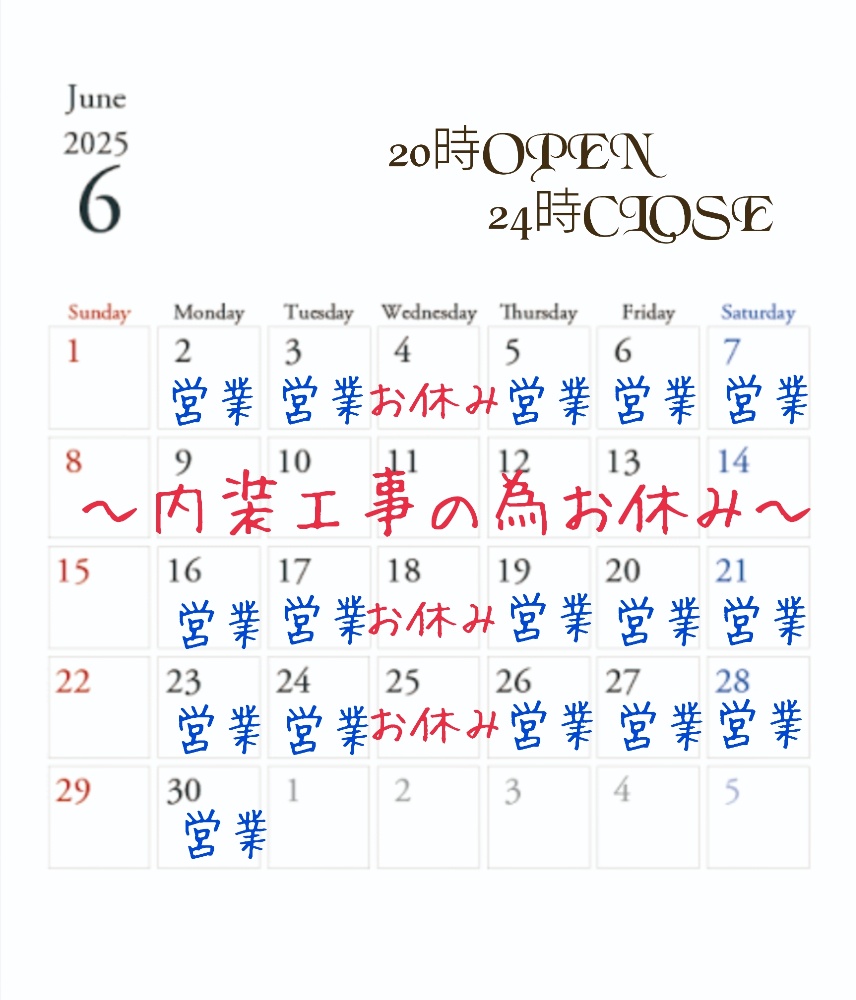 June
2025
6
20時OPEN
24時CLOSE
Sunday Monday Tuesday Wednesday Thursday Friday Saturday
1 2 3 4 5 6 7
営業 営業 お休み 営業 営業 営業
8 9 10 11 12 13 14
～内装工事の為お休み～
15 16 17 18 19 20 21
営業 営業 お休み 営業 営業 営業
22 23 24 25 26 27 28
営業 営業 お休み 営業 営業 営業
29 30 1 2 3 4 5
営業